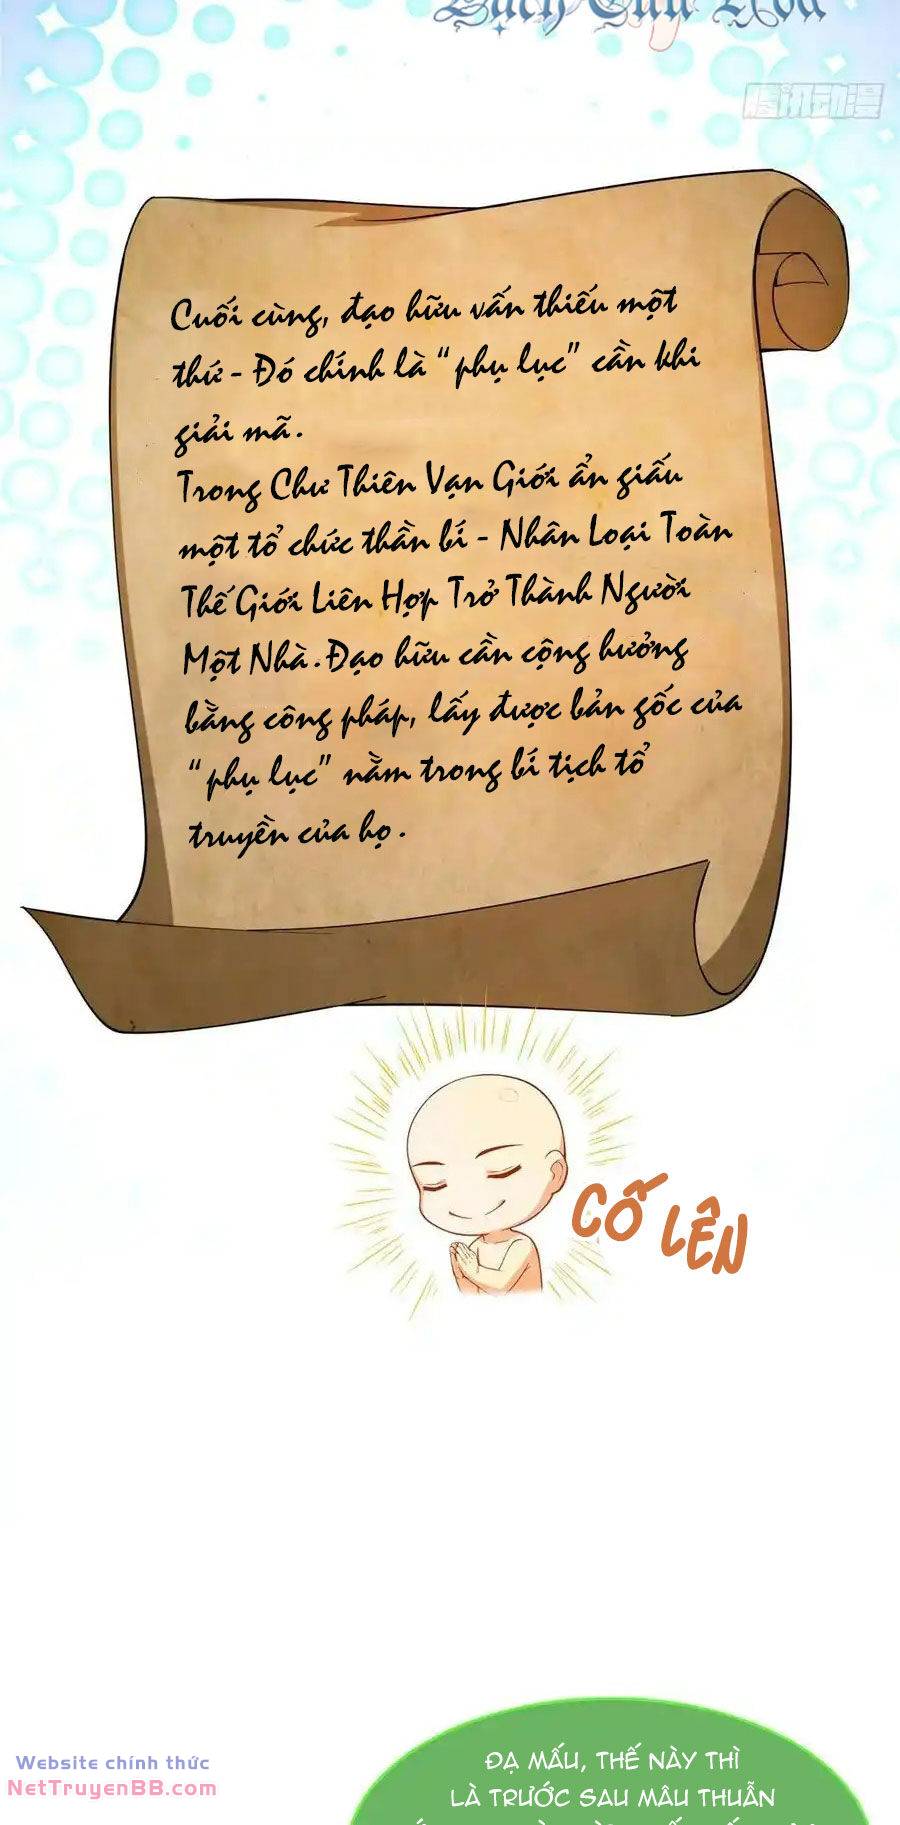 Bạch Cửu Hoa
腾讯动漫
Cuối cùng, đạo hữu vấn thiếu một
thứ - Đó chính là “phụ lục” cần khi
giải mã.
Trong Chư Thiên Vạn Giới ẩn giấu
một tổ chức thần bí - Nhân Loại Toàn
Thế Giới Liên Hợp Trở Thành Người
Một Nhà. Đạo hữu cần cộng hưởng
bằng công pháp, lấy được bản gốc của
“phụ lục” nằm trong bí tịch tổ
truyền của họ.
CỐ LÊN
Website chính thức
NetTruyenBB.com
ĐẠ MẤU, THẾ NÀY THÌ
LÀ TRƯỚC SAU MÂU THUẪN